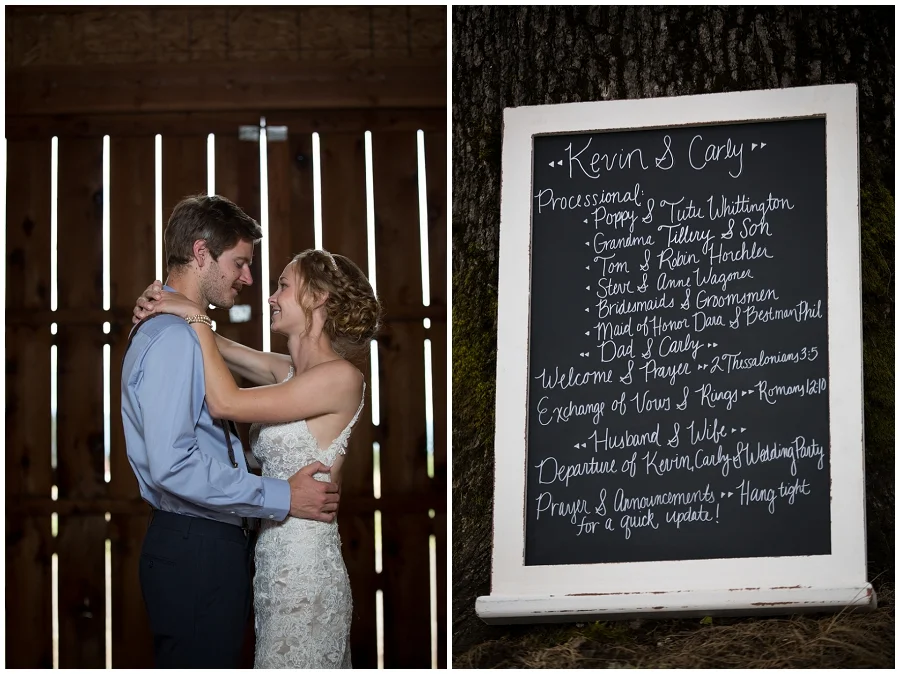 Kevin & Carly
Processional:
Poppy & Tutu Whittington
Grandma Tillery & Son
Tom & Robin Horchler
Steve & Anne Wagoner
Bridesmaids & Groomsmen
Maid of Honor Dara & Bestman Phil
Dad & Carly
Welcome & Prayer 2 Thessalonians 3:5
Exchange of Vows & Rings Romans 12:10
Husband & Wife
Departure of Kevin, Carly & Wedding Party
Prayer & Announcements Hang tight
for a quick update!